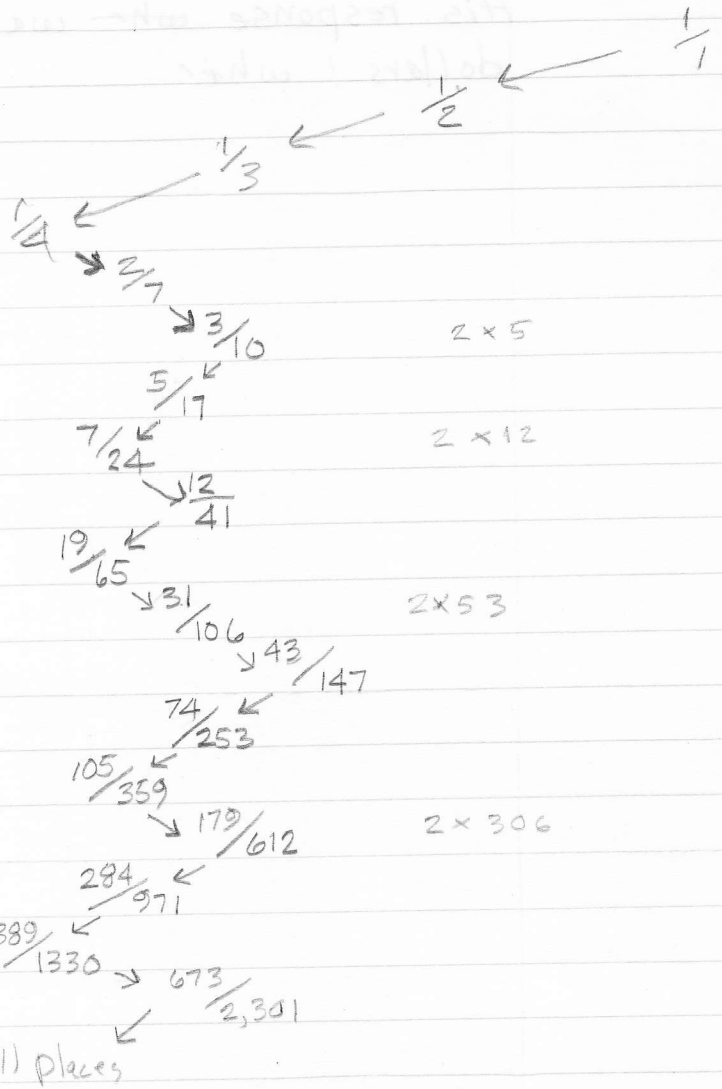 1/1
1/2
1/3
1/4
2/7
3/10 2 × 5
5/17
7/24 2 × 12
12/41
19/65
31/106 2×53
43/147
74/253
105/359
179/612 2 × 306
284/971
389/1330
673/2,301
places